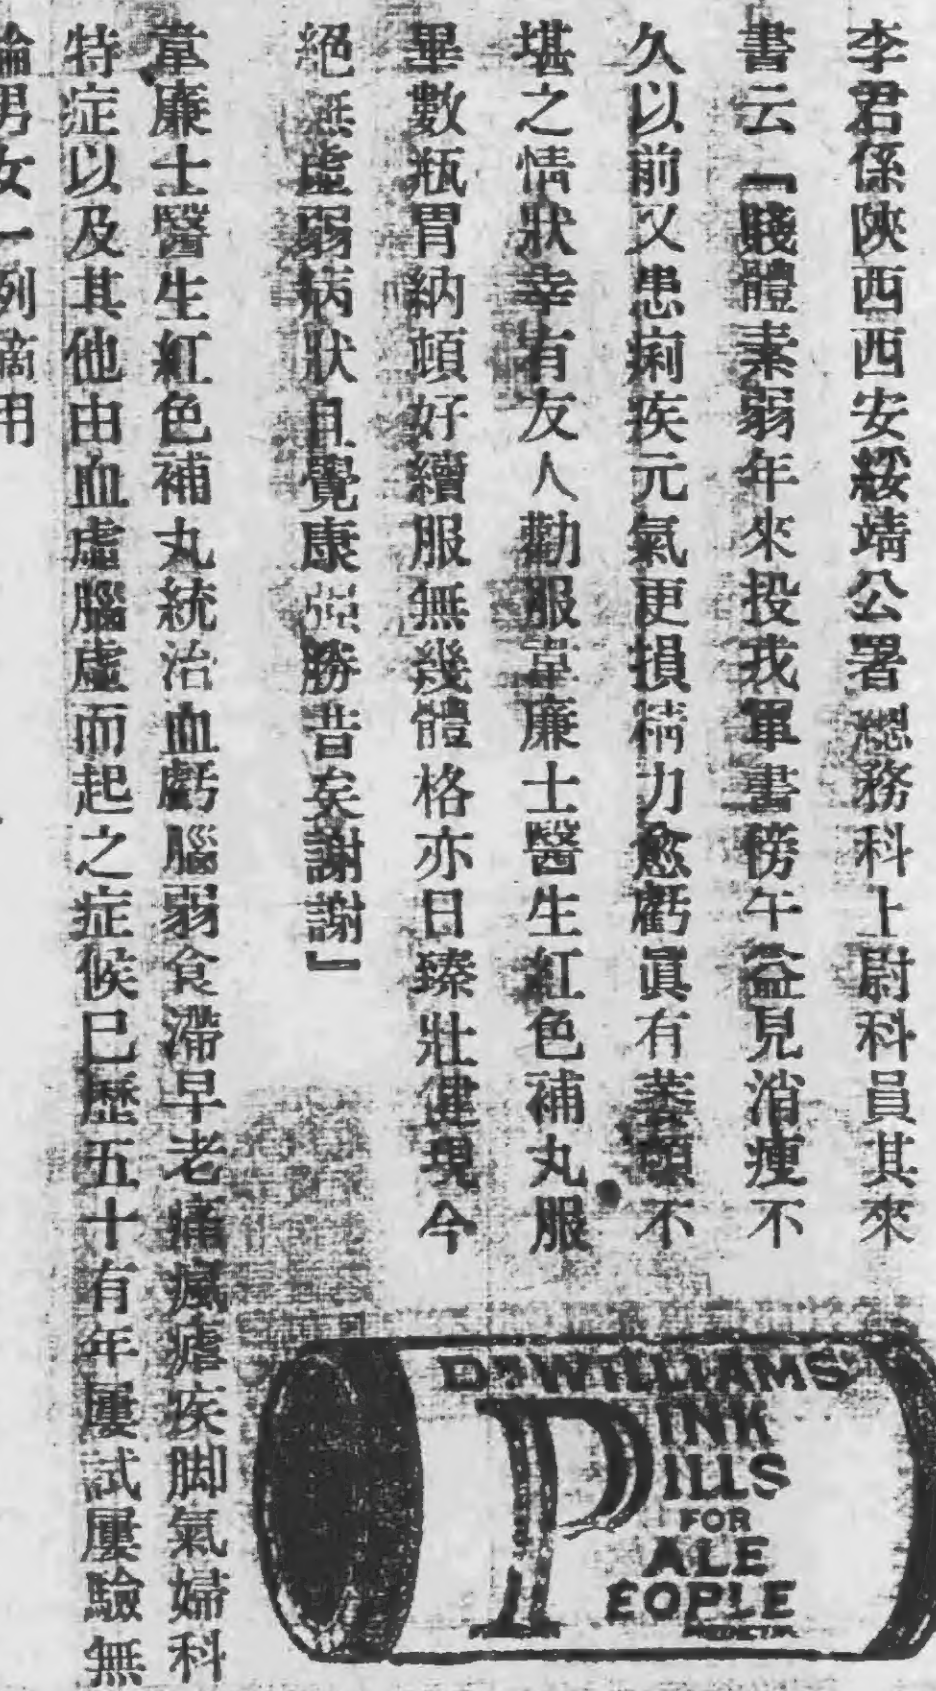 李君係陝西西安綏靖公署總務科上尉科員其來
書云「賤體素弱年來投戎軍書傍午益見消瘦不
久以前又患痢疾元氣更損精力愈虧眞有萎頓不
堪之情狀幸有友人勸服韋廉士醫生紅色補丸服
畢數瓶胃納頓好續服無幾體格亦日臻壯健現今
絕無虛弱病狀且覺康强勝昔矣謝謝」
韋廉士醫生紅色補丸統治血虧腦弱食滯早老痛瘋瘧疾脚氣婦科
特症以及其他由血虛腦虛而起之症候已歷五十有年屢試屢驗無
論男女一列適用
DR WILLIAMS'
PINK
PILLS
FOR
PALE
PEOPLE